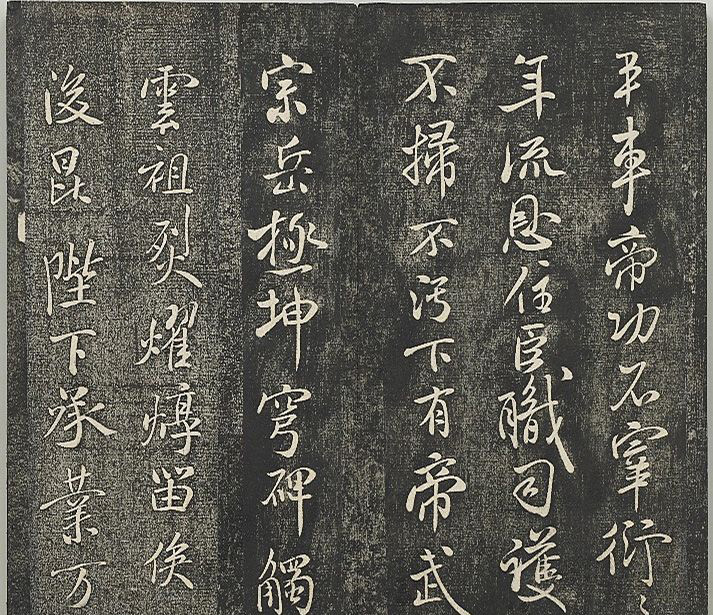 車帝功不宰衍
年流恩住臣職司護
不掃不污下有帝武
宗岳極坤穹碑觸
雲祖烈耀焞留俟
後昆陛下承業万